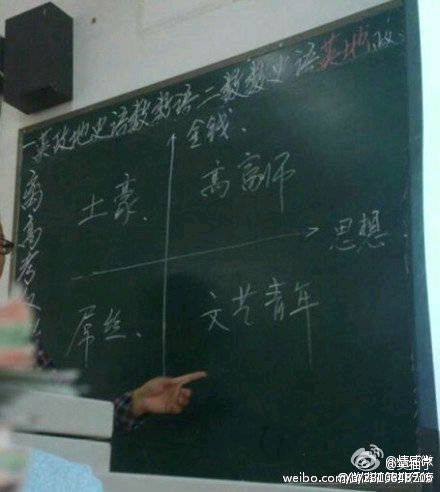 一英政地史语数数语二数数史语英地政
金钱
土豪、 高富帅
思想
屌丝、 文艺青年
离高考又
weibo.com/